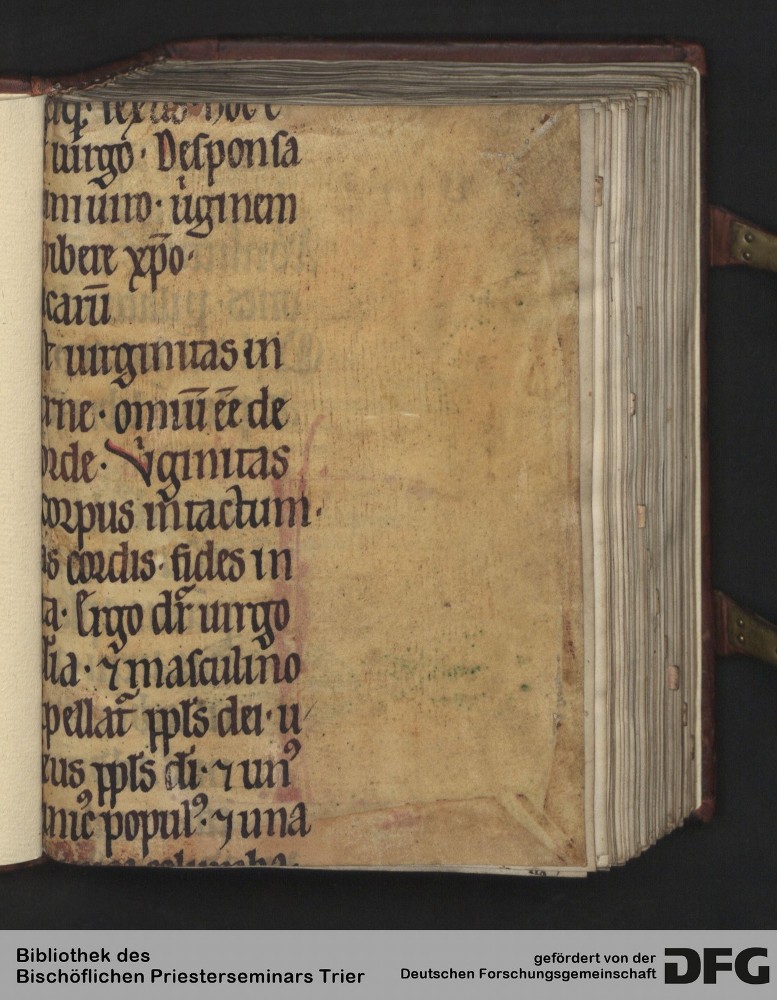 uirgo · Desponsa
uni uiro · uͥginem
hibere xp̄o ·
carū
uirginitas in
rne · omiū ēē de
orde · Vͥginitas
corpus intactum ·
is cordis · fides in
ta · Ergo dr̄ uirgo
sia · ⁊ masculino
pellat᷑ ppl̄s dei · u
eus ppl̄s di̅ · ⁊ unꝰ
unicꝰ populꝰ · ⁊ una
columba ·
Bibliothek des
Bischöflichen Priesterseminars Trier
gefördert von der
Deutschen Forschungsgemeinschaft
DFG